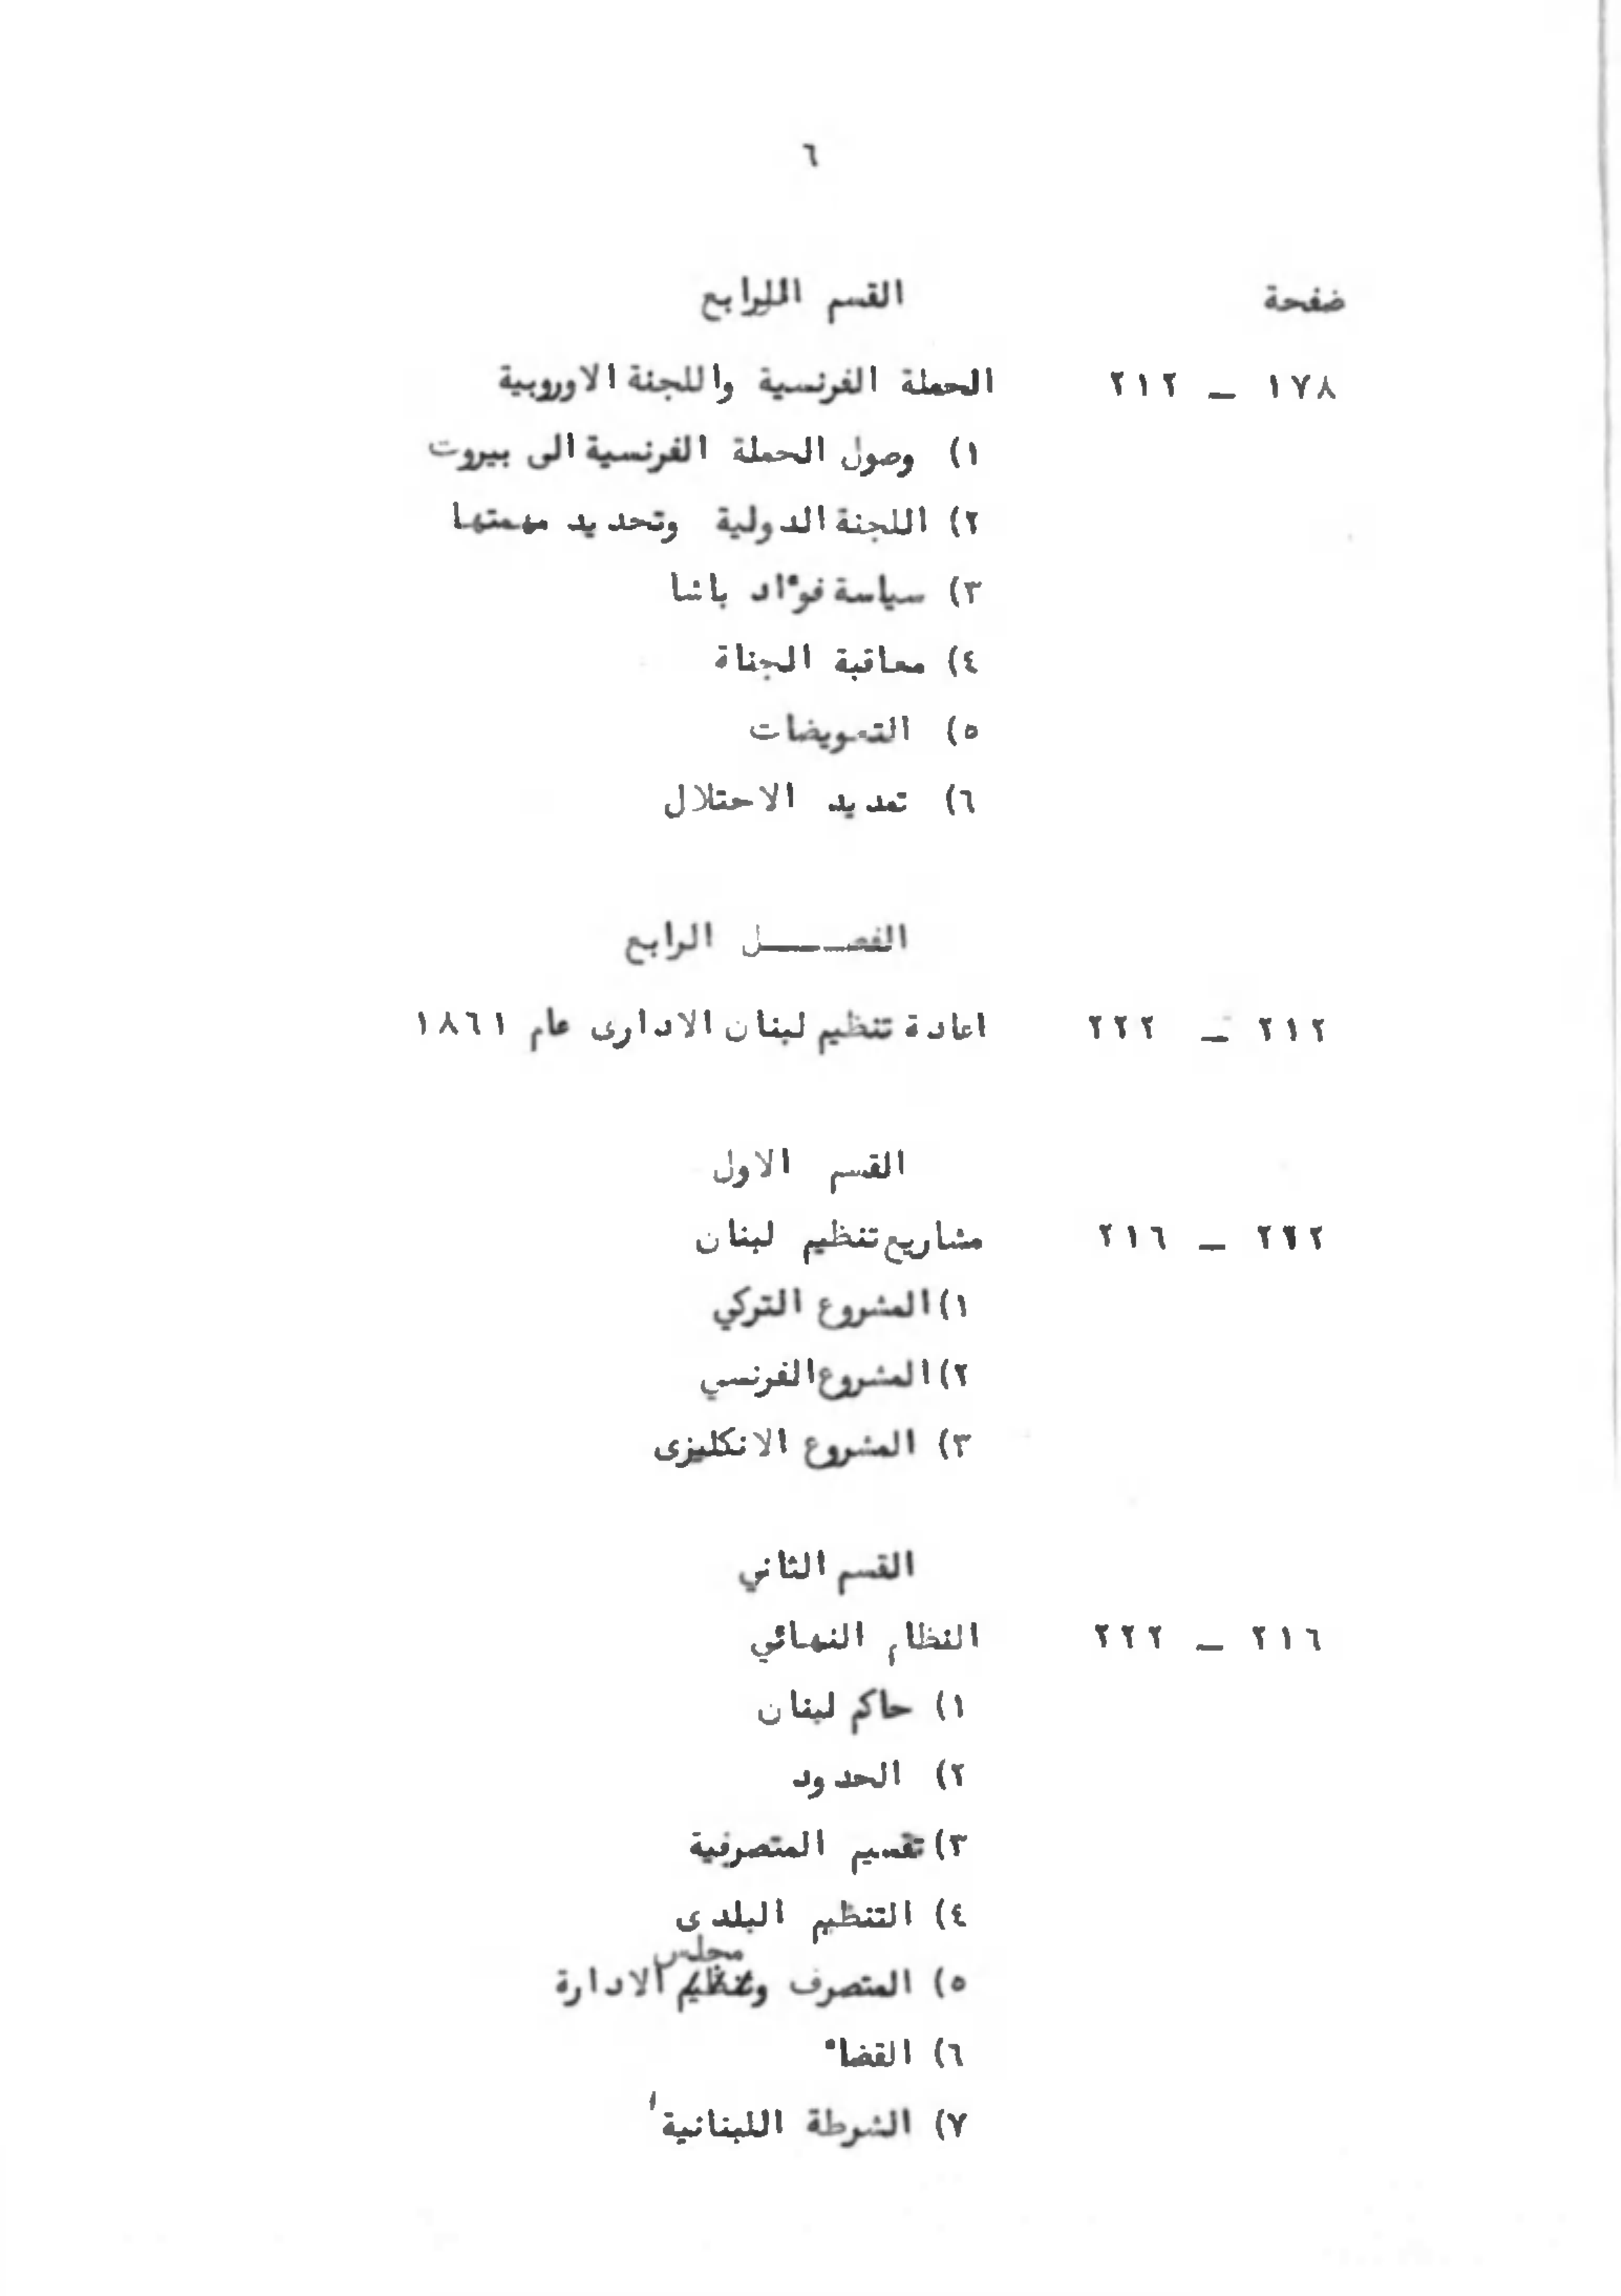 ٦
ضفحة القسم الرابع
١٧٨ ـ ٢١٢ الحملة الفرنسية واللجنة الاوروبية
١) وصول الحملة الفرنسية الى بيروت
٢) اللجنة الدولية وتحديد مهمتها
٣) سياسة فؤاد باشا
٤) معاقبة الجناة
٥) التعويضات
٦) تمديد الاحتلال
الفصـــل الرابع
٢١٢ ـ ٢٢٢ اعادة تنظيم لبنان الادارى عام ١٨٦١
القسم الاول
ـ ٢١٦ مشاريع تنظيم لبنان
١) المشروع التركي
٢) المشروع الفرنسي
٣) المشروع الانكليزى
القسم الثاني
٢١٦ ـ ٢٢٢ النظام النهائي
١) حاكم لبنان
٢) الحدود
٣) تقسيم المتصرفية
٤) التنظيم البلدى
مجلس
٥) المتصرف وتنظيم الادارة
٦) القضاء
٧) الشرطة اللبنانية